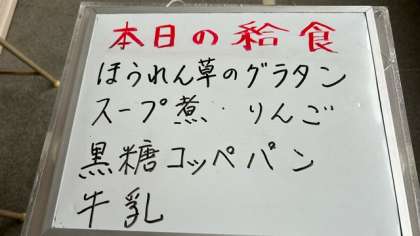 本日の給食
ほうれん草のグラタン
スープ煮・りんご
黒糖コッペパン
牛乳